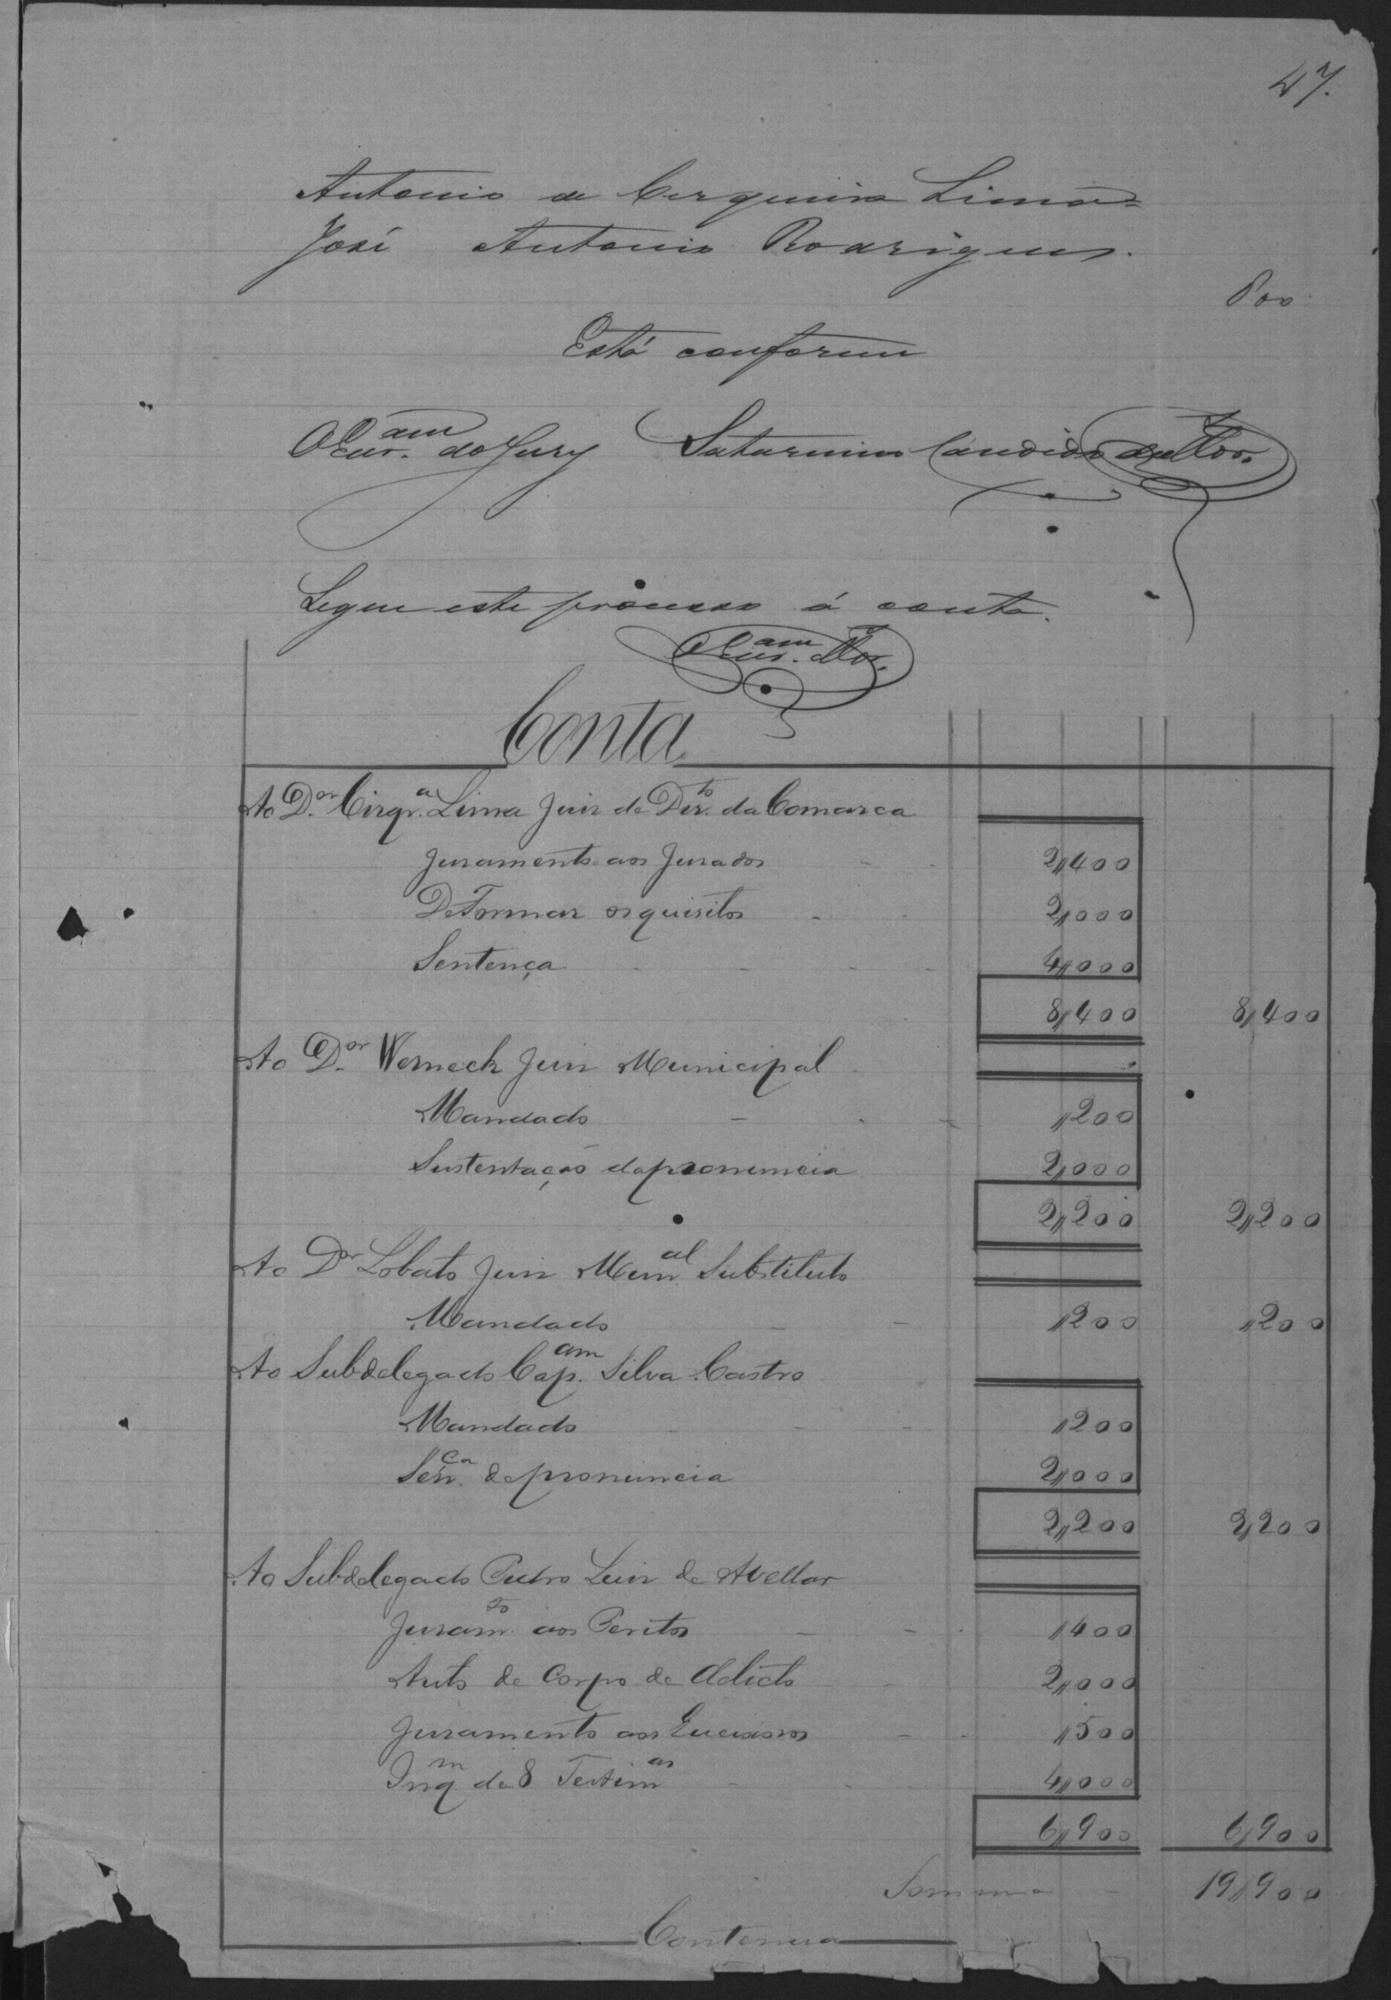 47.
Antonio de Cerqueira Lima =
José Antonio Rodrigues.
Está conforme
O Escr.am do Jury Saturnino Candido
Segue este processo á conta.
O Escr.am
Conta
Ao D.or Cirqr.a Lima Juiz de Dir.to da Comarca
Juramento aos Jurados 2,,400
De Formar os quisitos 2,,000
Sentença 4,,000
8,,400 8,,400
Ao D.or Werneck Juiz Municipal
Mandado ,,200
Sustentação da pronuncia 2,,000
2,,200 2,,200
Ao D.or Lobato Juiz Mun.al Substituto
Mandado ,,200 ,,200
Ao Subdelegado Cap.am Silva Castro
Mandado ,,200
Sen.ca de pronuncia 2,,000
2,,200 2,,200
Ao Subdelegado Pedro Luiz de Avellar
Juram.to aos Peritos ,,400
Auto de Corpo de delicto 2,,000
Juramento aos ,,500
Inq.m de 8 Testim.as 4,,000
6,,900 6,,900
Somma 19,,900
Continua